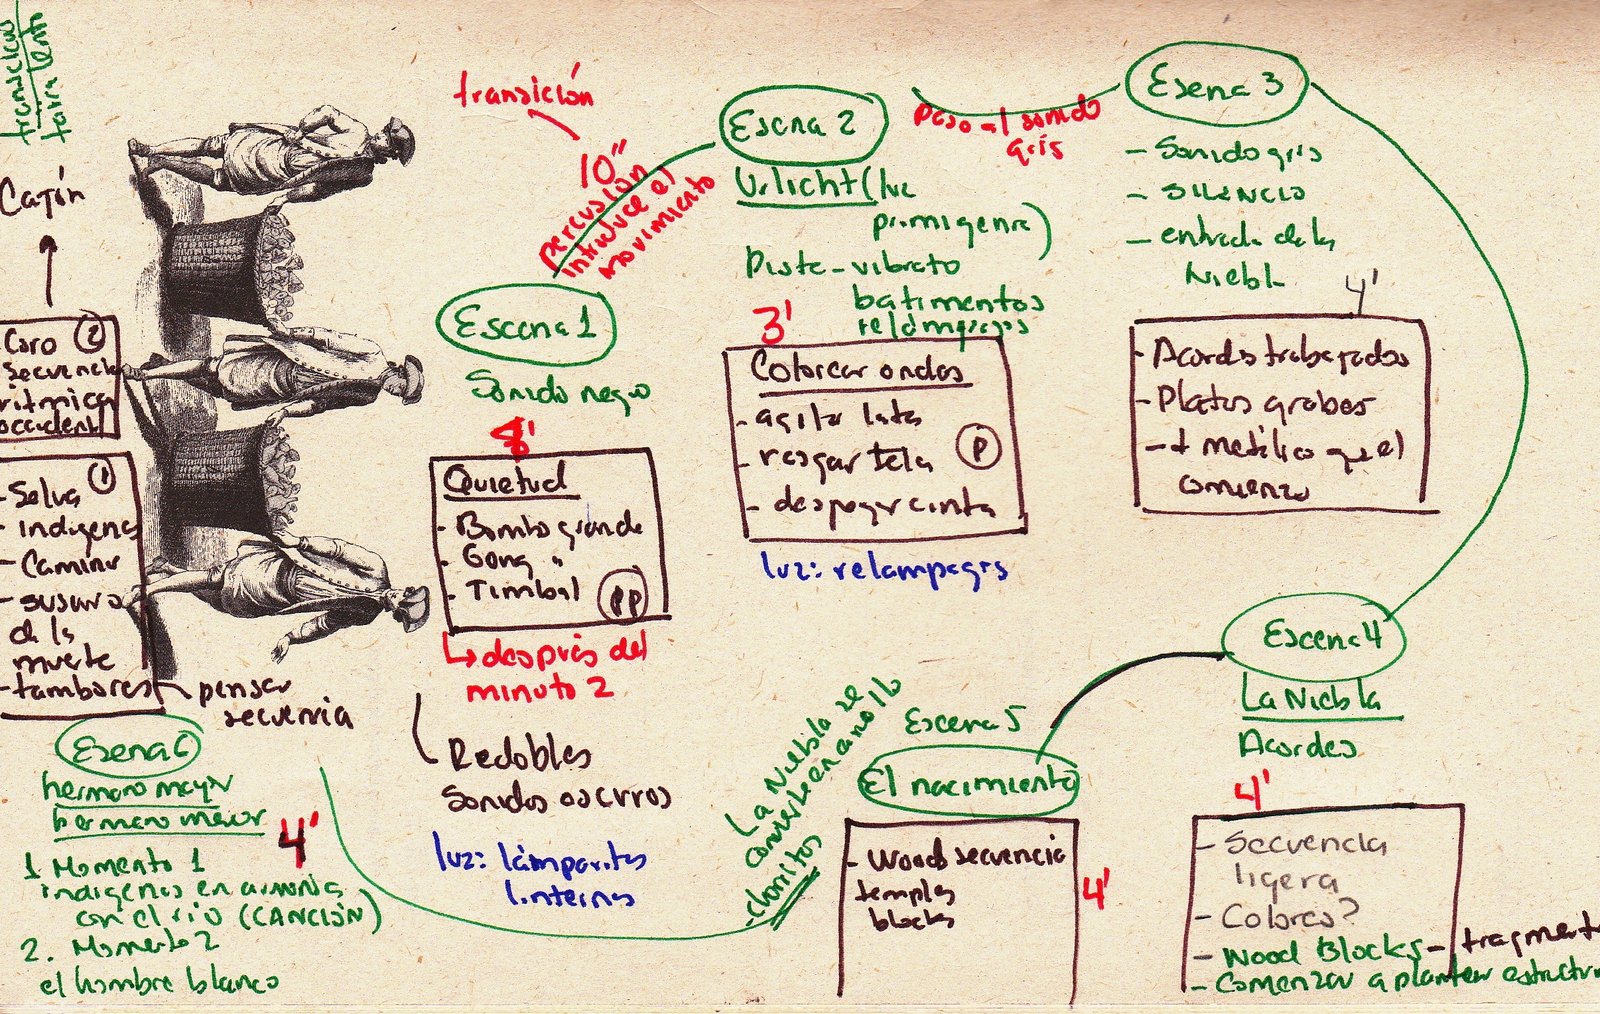 transición
10"
percusión
introduce el
movimiento
Escena 1
Sonido negro
8'
Quietud
- Bombo grande
- Gong "
- Timbal
PP
↳ después del
minuto 2
Redobles
Sonidos oscuros
luz: lámparitas
linternas
Escena 2
Urlicht (luz
primigenia)
vibrato
batimentos
relámpagos
3'
Colorear ondas
- agitar latas
- rasgar tela
- despegar cinta
P
luz: relampagos
Paso al sonido
gris
Escena 3
- Sonido gris
- SILENCIO
- entrada de la
Niebla
4'
- Acordes trabajados
- Platos grabes
- + metálico que el
comienzo
Escena 4
La Niebla
Acordes
4'
- Secuencia
ligera
- Colores?
- Wood Blocks - fragmento
- Comenzar a plantear estructura
Escena 5
El nacimiento
- Wood secuencia
temples
blocks
4'
La Niebla se
convierte en arrollo
chorritos
Escena 6
hermano mayor
hermano menor
4'
1 Momento 1
indigenas en armonia
con el rio (CANCIÓN)
2. Momento 2
el hombre blanco
1
- Selva
- indigenas
- Caminar
- susurro
de la
muerte
- tambores
pensar
secuencia
2
Coro
secuencia
ritmica
occident
Cajón